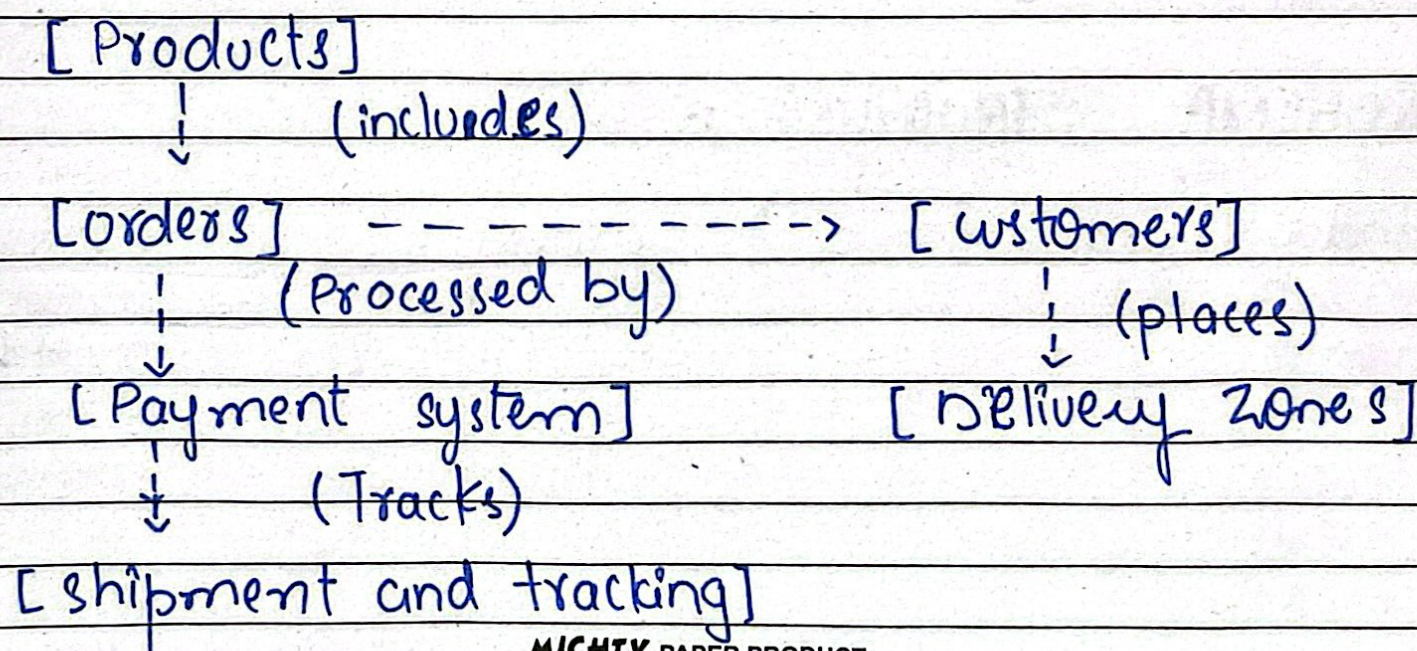 [Products]
(includes)
[orders] - - - - - - - - - -> [customers]
(Processed by) (places)
[Payment system] [Delivery Zones]
(Tracks)
[shipment and tracking]
MIGHTY PAPER PRODUCT